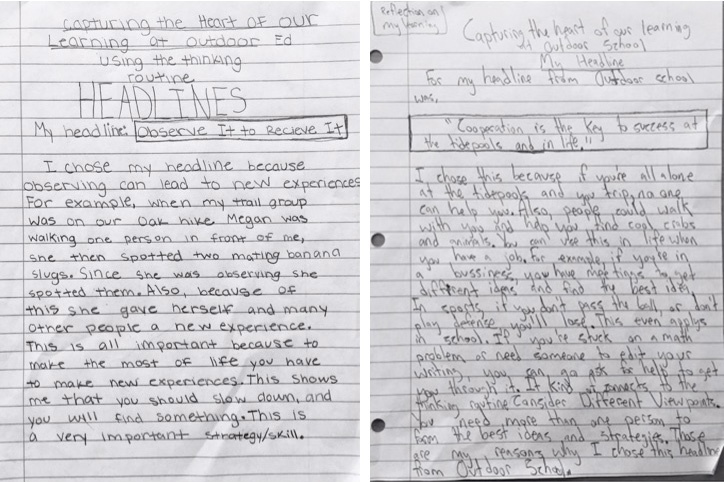 Capturing the Heart of our
Learning at outdoor Ed
using the thinking
routine
HEADLINES
My headline: Observe It to Recieve It
I chose my headline because
observing can lead to new experiences
For example, when my trail group
was on our Oak hike. Megan was
walking one person in front of me,
she then spotted two mating banana
slugs. Since she was observing she
spotted them. Also, because of
this she gave herself and many
other people a new experience.
This is all important because to
make the most of life you have
to make new experiences. This shows
me that you should slow down, and
you will find something. This is
a very important strategy/skill.
Reflection on
my learning
Capturing the heart of our learning
at Outdoor School
My Headline
For my headline from Outdoor school
was,
"Cooperation is the key to success at
the tidepools and in life."
I chose this because if you're all alone
at the tidepools and you trip, no one
can help you. Also, people could walk
with you and help you find cool crabs
and animals. You can use this in life when
you have a job. for example, if you're in
a bussiness you have meetings to get
different ideas and find the best idea.
In sports, if you don't pass the ball, or don't
play defense you'll lose. This even applys
in school. If you're stuck on a math
problem or need someone to edit your
writing you can go ask for help to get
you through it. It kind of connects to the
thinking routine Consider Different Viewpoints.
You need more than one person to
form the best ideas and strategies. Those
are my reasons why I chose this headline
from Outdoor School.